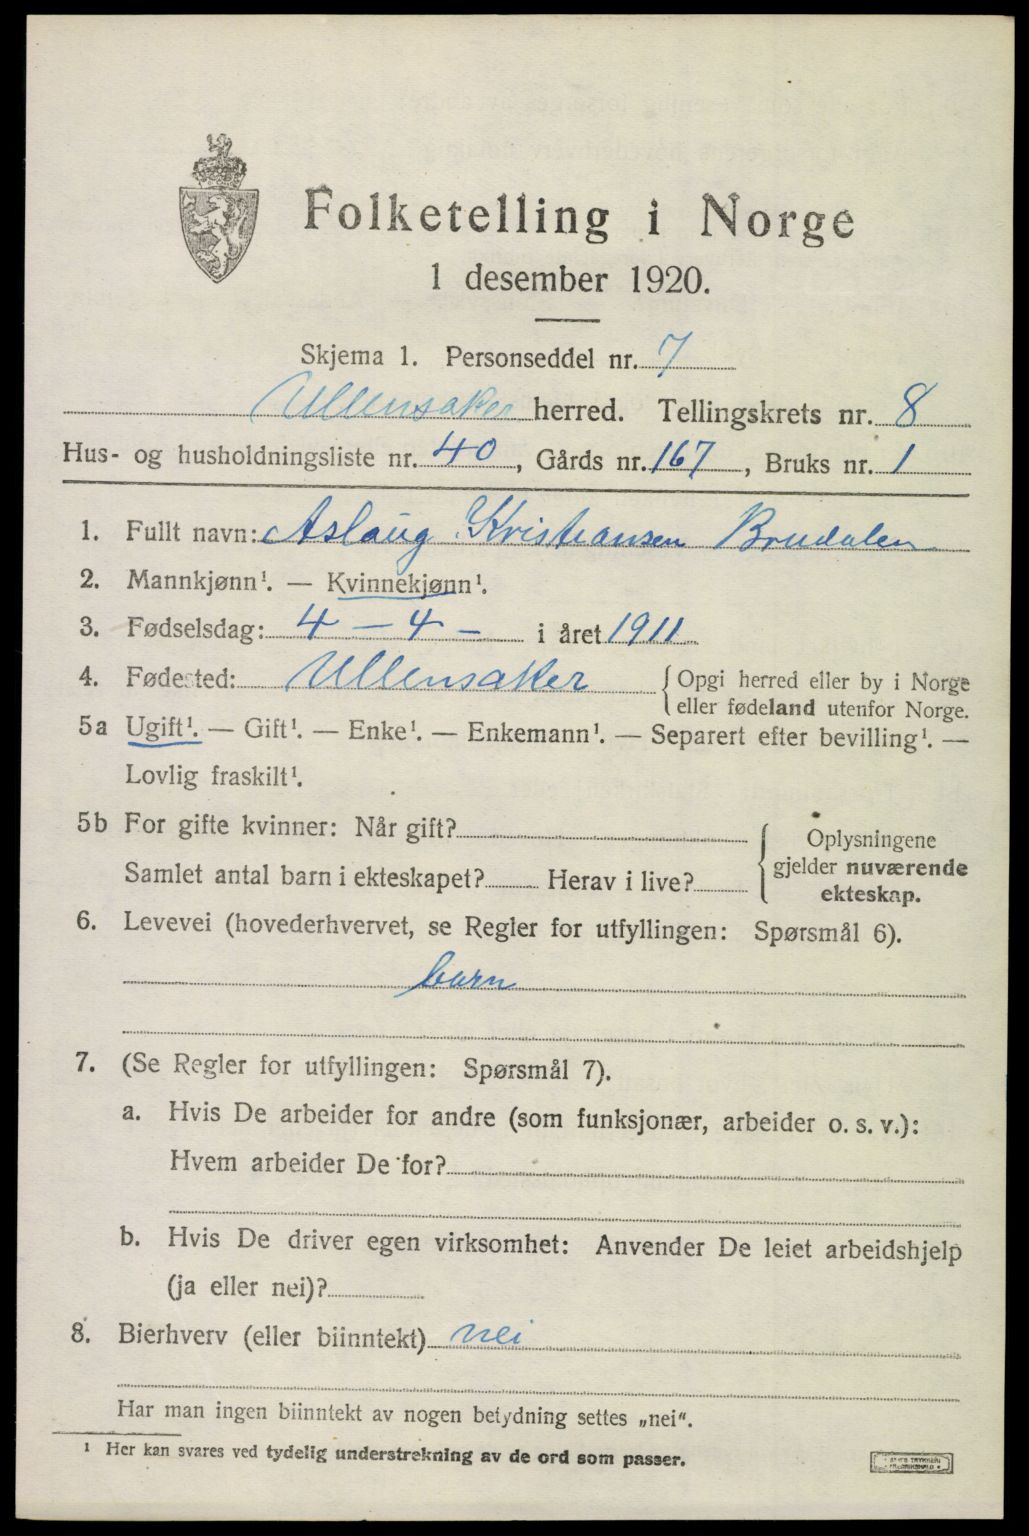 Folketelling i Norge
1 desember 1920.
Skjema 1. Personseddel nr. 7
Ullensaker herred. Tellingskrets nr. 8
Hus- og husholdningsliste nr. 40, Gårds nr. 167, Bruks nr. 1
1. Fullt navn: Aslaug Kristiansen Brudalen
2. Mannkjønn¹. — Kvinnekjønn¹.
3. Fødselsdag: 4 - 4 - i året 1911
4. Fødested: Ullensaker { Opgi herred eller by i Norge
eller fødeland utenfor Norge.
5a Ugift¹. — Gift¹. — Enke¹. — Enkemann¹. — Separert efter bevilling¹. —
Lovlig fraskilt¹.
5b For gifte kvinner: Når gift? { Oplysningene
gjelder nuværende
ekteskap.
Samlet antal barn i ekteskapet? Herav i live?
6. Levevei (hovederhvervet, se Regler for utfyllingen: Spørsmål 6).
barn
7. (Se Regler for utfyllingen: Spørsmål 7).
a. Hvis De arbeider for andre (som funksjonær, arbeider o. s. v.):
Hvem arbeider De for?
b. Hvis De driver egen virksomhet: Anvender De leiet arbeidshjelp
(ja eller nei)?
8. Bierhverv (eller biinntekt) nei
Har man ingen biinntekt av nogen betydning settes „nei".
¹ Her kan svares ved tydelig understrekning av de ord som passer.